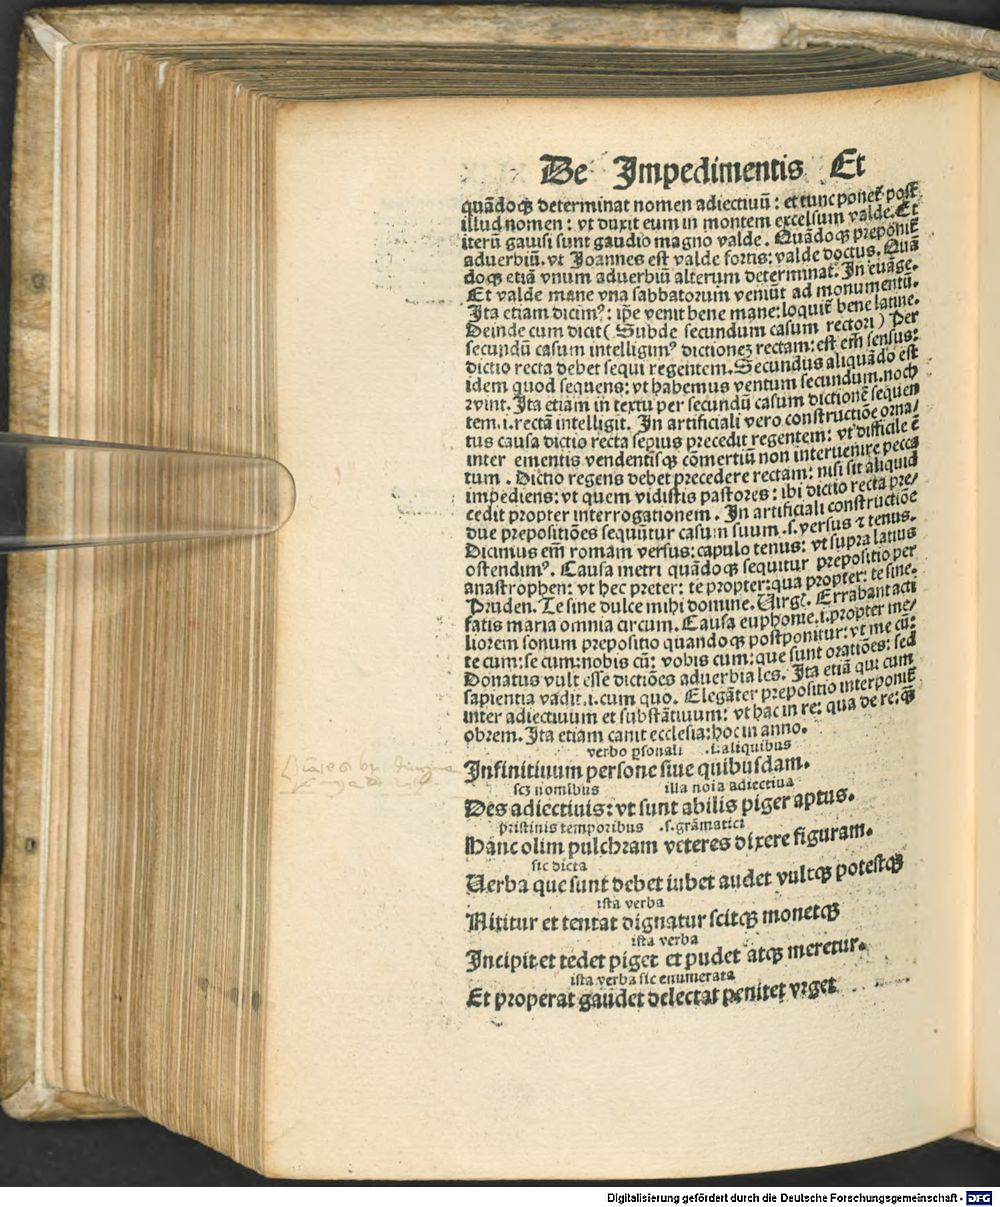 De Impedimentis Et
quādoqȝ determinat nomen adiectiuū: et tunc ponet᷑ post
illud nomen: vt duxit eum in montem excelsum valde. Et
iterū gauisi sunt gaudio magno valde. Quādoqȝ preponit᷑
aduerbiū. vt Joannes est valde fortis: valde doctus. Quā
doqȝ etiā vnum aduerbiū alterum determinat. In euāge.
Et valde mane vna sabbatorum veniūt ad monumentū.
Ita etiam dicimꝰ: ip̄e venit bene mane: loquit᷑ bene latine.
Deinde cum dicit (Subde secundum casum rectori) Per
secundū casum intelligimꝰ dictioneȝ rectam: est em̄ sensus:
dictio recta debet sequi regentem. Secundus aliquādo est
idem quod sequens: vt habemus ventum secundum. noch
wint. Ita etiam in textu per secundū casum dictionē sequen
tem .i. rectā intelligit. In artificiali vero constructiōe orna/
tus causa dictio recta sepius precedit regentem: vt difficile ē
inter ementis vendentisqȝ cōmertiū non interuenire pecca
tum. Dictio regens debet precedere rectam: nisi sit aliquid
impediens: vt quem vidistis pastores: ibi dictio recta pre/
cedit propter interrogationem. In artificiali constructiōe
due prepositiōes sequūtur casum suum .s. versus ⁊ tenus.
Dicimus em̄ romam versus: capulo tenus: vt supra latius
ostendimꝰ. Causa metri quādoqȝ sequitur prepositio per
anastrophen: vt hec preter: te propter: qua propter: te sine.
Pruden. Te sine dulce mihi domine. Uirgi. Errabant acti
fatis maria omnia circum. Causa euphonie .i. propter me/
liorem sonum prepositio quandoqȝ postponitur: vt me cū:
te cum: se cum: nobis cū: vobis cum: que sunt oratiōes: sed
Donatus vult esse dictiōes aduerbiales. Ita etiā qui cum
sapientia vadit .i. cum quo. Elegāter prepositio interponit᷑
inter adiectiuum et substātiuum: vt hac in re: qua de re: quā
obrem. Ita etiam canit ecclesia: hoc in anno.
verbo ꝑsonali .i. aliquibus
Infinitiuum persone siue quibusdam.
scȝ nomibus illa noīa adiectiua
Des adiectiuis: vt sunt abilis piger aptus.
pristinis temporibus .s. grāmatici
Hanc olim pulchram veteres dixere figuram.
sic dicta
Uerba que sunt debet iubet audet vultqȝ potestqȝ
ista verba
Nititur et tentat dignatur scitqȝ monetqȝ
ista verba
Incipit et tedet piget et pudet atqȝ meretur.
ista verba sic enumerata
Et properat gaudet delectat penitet vrget
Digitalisierung gefördert durch die Deutsche Forschungsgemeinschaft - DFG